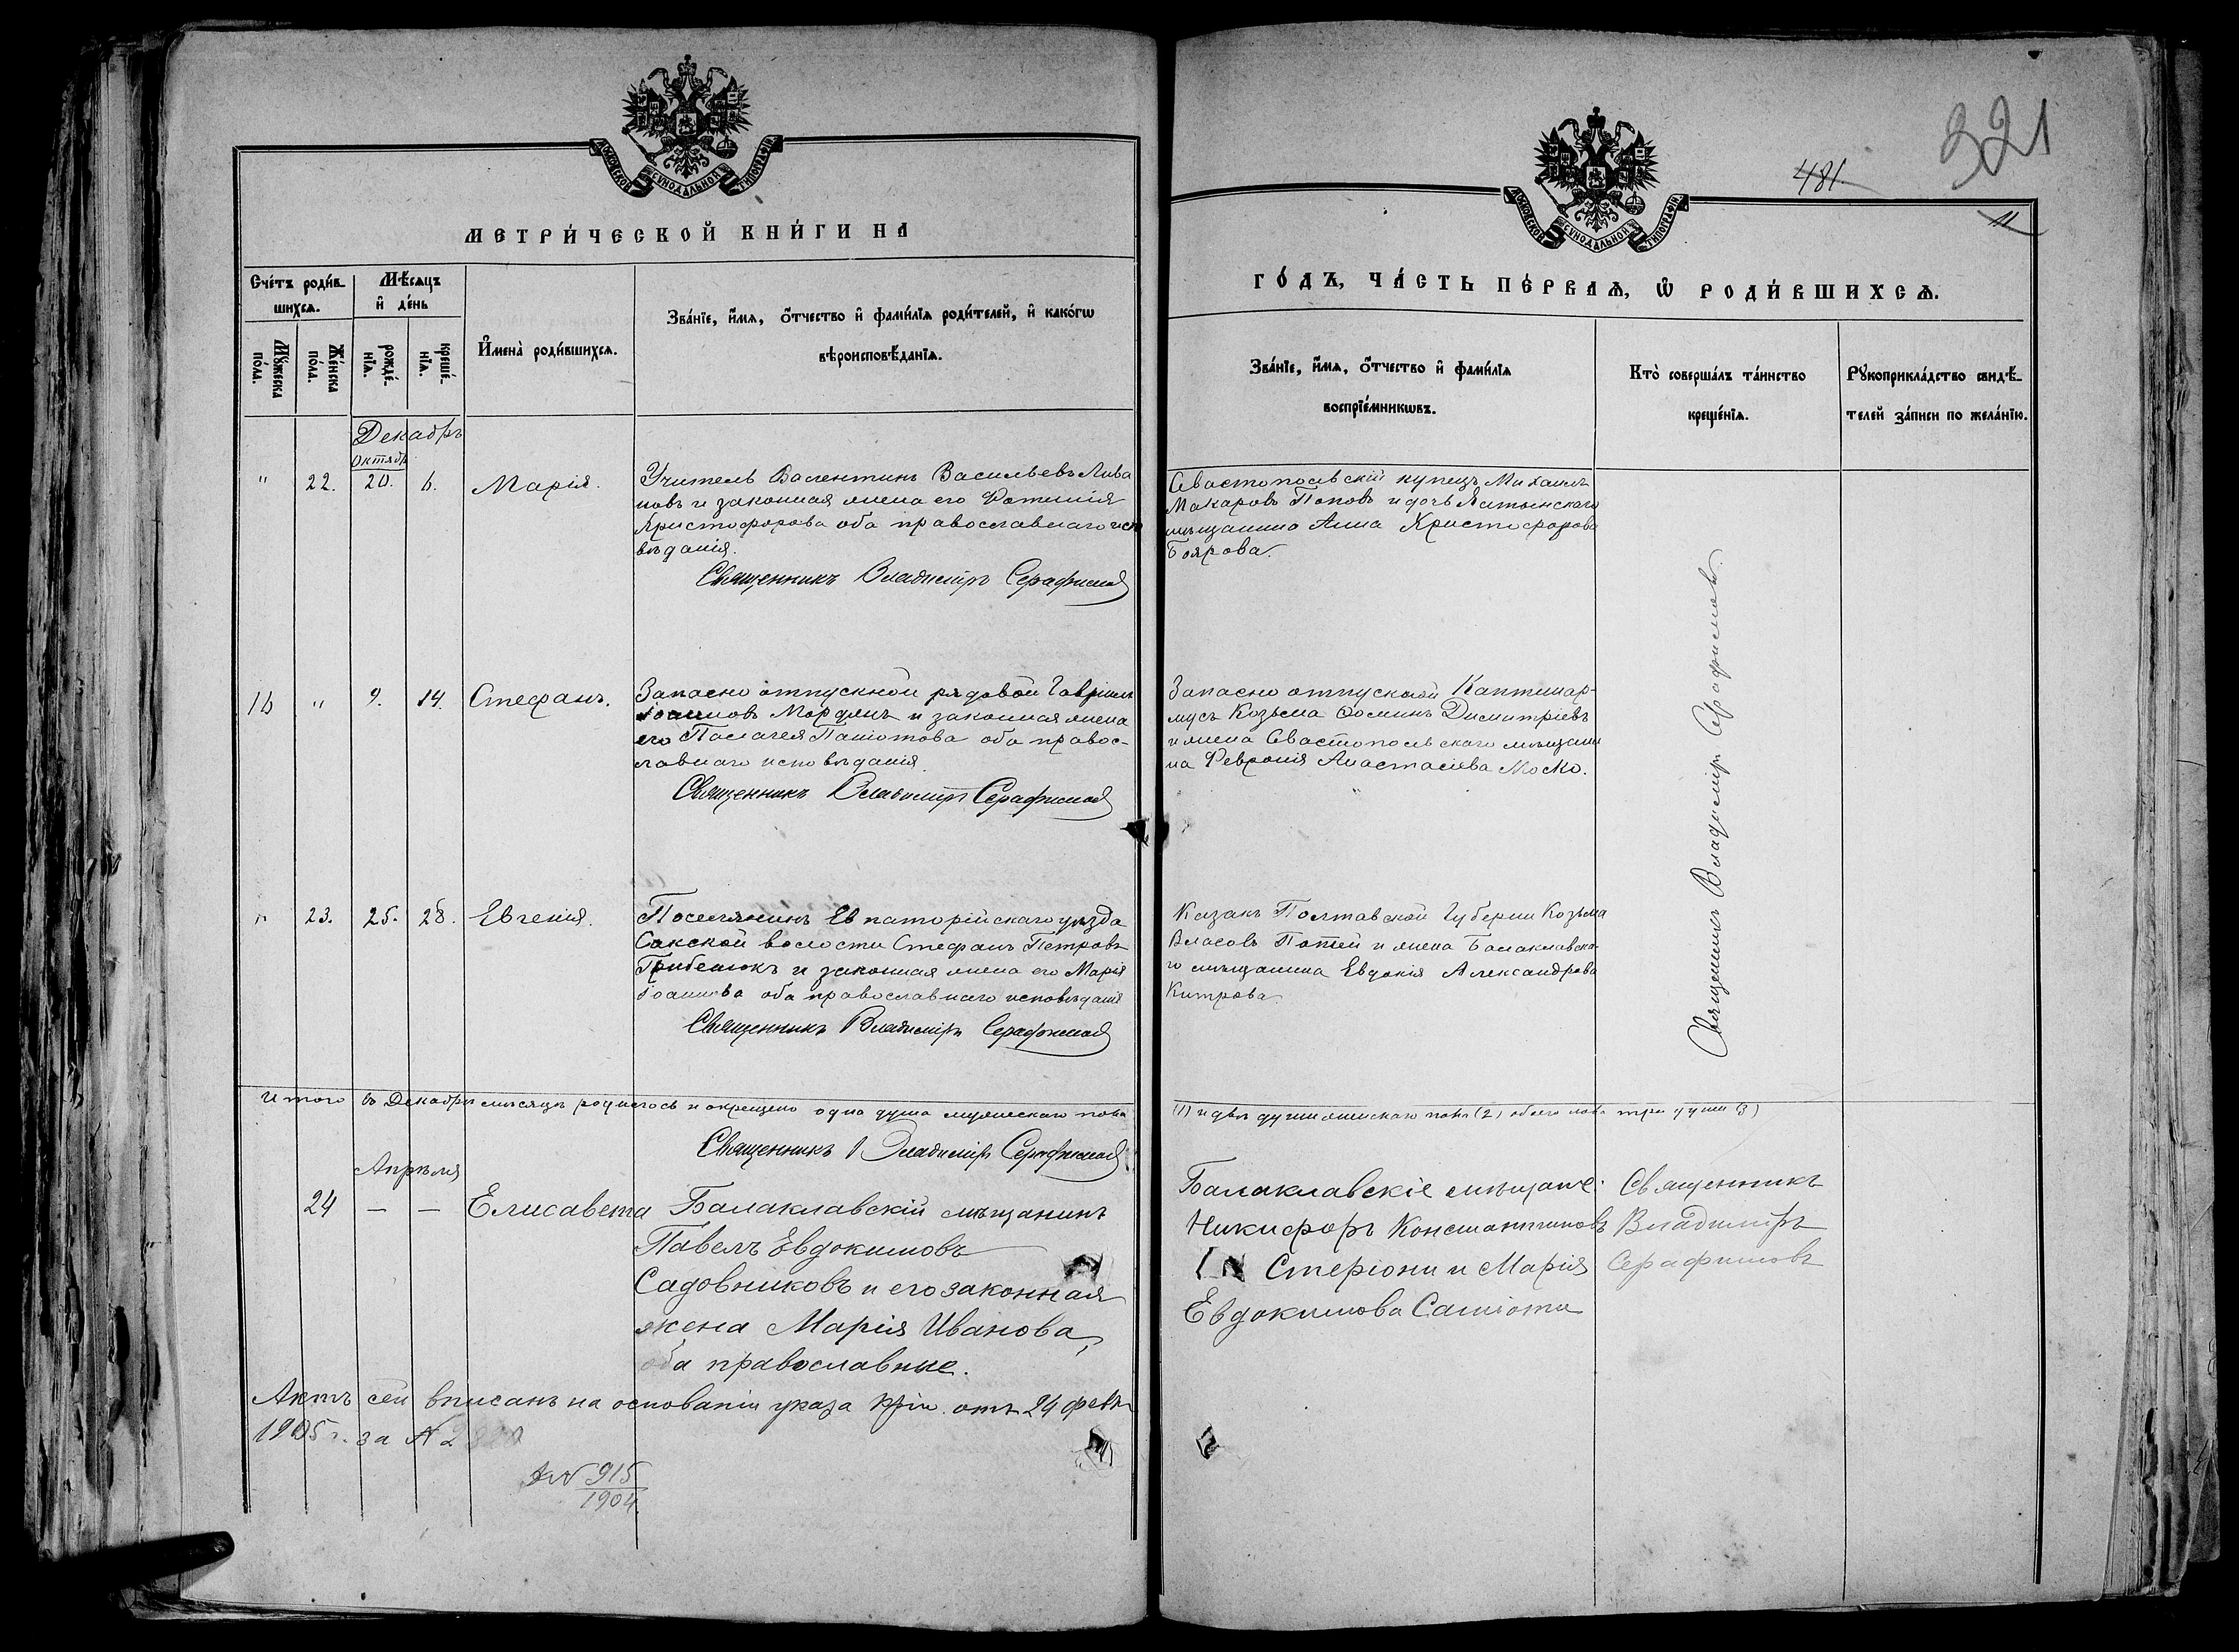 МОСКОВСКОЙ СѴНОДАЛЬНОЙ ТИПОГРАФІИ
МЕТРИ́ЧЕСКОЙ КНИ́ГИ НА
Сче́тъ роди́в-
шихсѧ.
Мѣ́сѧцъ
и҆ де́нь
Мꙋ́жеска
по́ла.
Же́нска
по́ла.
рожде́-
нїѧ.
креще́-
нїѧ.
И҆мена̀ роди́вшихсѧ.
Зва́нїе, и҆́мѧ, ѻ҆́тчество и҆ фами́лїѧ роди́телей, и҆ како́гѡ
вѣроисповѣ́данїѧ.
Декабрь
Октябр
" 22. 20. 6. Марія.
Учитель Валентинъ Васильевъ Лива
новъ и законная жена его Фотинія
Христофорова оба православнаго испо
вѣданія.
Священникъ Владиміръ Серафимов
16 " 9. 14. Стефанъ.
Запасно отпускной рядовой Гавріилъ
Іоанновъ Мордикъ и законная жена
его Пелагея Панютова оба правос-
лавнаго исповѣданія.
Священникъ Владиміръ Серафимов
" 23. 25. 28. Евгенія.
Поселянинъ Евпаторійскаго уѣзда
Сакской волости Стефанъ Петровъ
Грибенюкъ и законная жена его Марія
Іоаннова оба православнаго исповѣданія
Священникъ Владиміръ Серафимов
Итого въ Декабрѣ мѣсяцѣ родилось и окрещено одна душа мужескаго пола
Священникъ Владиміръ Серафимов
Апрѣля
24 — — Елисавета
Балаклавскій мѣщанинъ
Павелъ Евдокимовъ
Садовниковъ и его законная
жена Марія Иванова,
оба православные.
Актъ сей вписанъ на основаніи указа отъ 24 февр
1905 г. за №
№ 915
1904.
321
481.
11
МОСКОВСКОЙ СѴНОДАЛЬНОЙ ТИПОГРАФІИ
ГО́ДЪ, ЧА́СТЬ ПЕ́РВАѦ, Ѽ РОДИ́ВШИХСѦ.
Зва́нїе, и҆́мѧ, ѻ҆́тчество и҆ фами́лїѧ
воспрїе́мникѡвъ.
Кто̀ соверша́лъ та́инство
креще́нїѧ.
Рꙋкоприкла́дство свидѣ́-
телей за́писи по жела́нїю.
Севастопольскій купецъ Михаилъ
Макаровъ Поповъ и дочь Ялтинскаго
мѣщанина Анна Христофорова
Боярова.
Запасно отпускной Каптенар-
мусъ Козьма Ѳоминъ Димитріевъ
и жена Севастопольскаго мѣщани
на Февронія Анастасіева Моско.
Казакъ Полтавской Губерніи Козьма
Власовъ Потей и жена Балаклавска-
го мѣщанина Евдокія Александрова
Китрова.
Священникъ Владиміръ Серафимовъ.
(1) и двѣ души женскаго пола (2) обоего пола три души (3)
Балаклавскіе мѣщане:
Никифоръ Константиновъ
Стеріони и Марія
Евдокимова Саніоти
Священникъ
Владиміръ
Серафимовъ